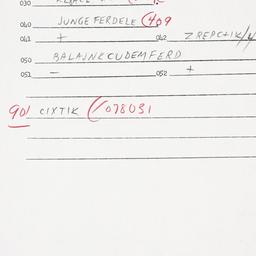 030
040 JUNGE FERDELE (409
041 + 042 Z REPCTIK/4
050 BALAJNKCUDEMFERD
051 - 052 +
901 CIXTIK (/078031